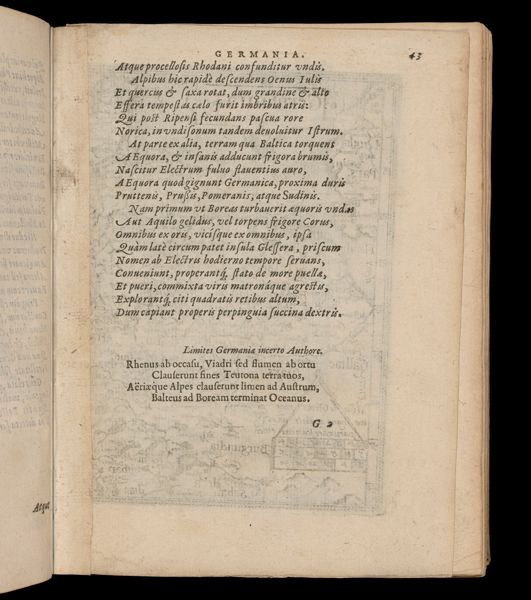 GERMANIA. 43
Atque procellosis Rhodani confunditur vndis.
Alpibus hic rapidè descendens Oenus Iulis
Et quercus & saxa rotat, dum grandine & alto
Effera tempestas cælo furit imbribus atris:
Qui post Ripensi fecundans pascua rore
Norica, in vndisonum tandem deuoluitur Istrum.
At parte ex alia, terram qua Baltica torquent
AEquora, & insanis adducunt frigora brumis,
Nascitur Electrum fuluo flauentius auro,
AEquora quod gignunt Germanica, proxima duris
Pruttenis, Prussis, Pomeranis, atque Sudinis.
Nam primum vt Boreas turbauerit æquoris vndas
Aut Aquilo gelidus, vel torpens frigore Corus,
Omnibus ex oris, vicisque ex omnibus, ipsa
Quàm latè circum patet insula Glessera, priscum
Nomen ab Electris hodierno tempore seruans,
Conueniunt, properantq́; stato de more puellæ,
Et pueri, commixta viris matronáque agrestis,
Explorantq́; citi quadratis retibus altum,
Dum capiant properis perpinguia succina dextris.
Limites Germaniæ incerto Authore.
Rhenus ab occasu, Viadri sed flumen ab ortu
Clauserunt fines Teutona terra tuos,
Aëriæque Alpes clauserunt limen ad Austrum,
Balteus ad Boream terminat Oceanus.
G 2
Atque